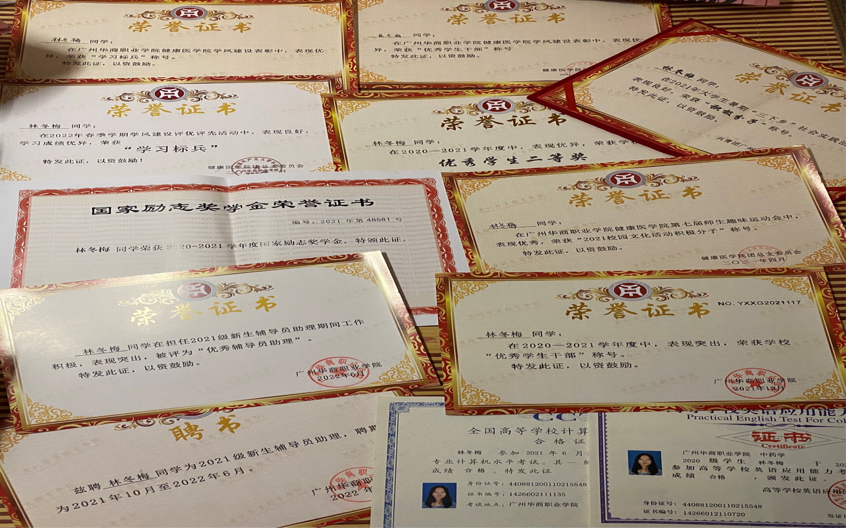 荣誉证书
同学:
在广州华商职业学院健康医学院学风建设表彰中,表现优
异,荣获“学习标兵”称号。
特发此证,以资鼓励。
荣誉证书
同学:
在广州华商职业学院健康医学院学风建设表彰中,表现优
异,荣获“优秀学生干部”称号。
特发此证,以资鼓励。
荣誉证书
同学:
在2021年大学生暑期“三下乡”社会实践
表现良好,荣获
称号。
特发此证,以资鼓励。
荣誉证书
林冬梅 同学:
在2022年春季学期学风建设评优评先活动中,表现良好,
学习成绩优异,荣获
“学习标兵”
特发此证,以资鼓励!
健康医学院
委员会
荣誉证书
林冬梅 同学:
在2020—2021学年度中,表现优异,荣获学校
优秀学生二等奖
特发此证,以资鼓励。
国家励志奖学金荣誉证书
编号:2021 年第 48581 号
林冬梅 同学荣获 2020-2021学年度国家励志奖学金。特颁此证。
荣誉证书
林冬梅 同学:
在广州华商职业学院健康医学院第七届师生趣味运动会中,
表现优秀,荣获“2021校园文化活动积极分子”称号。
特发此证,以资鼓励。
健康医学院团总支委员会
二〇二一年四月
荣誉证书
林冬梅 同学在担任2021级新生辅导员助理期间工作
积极,表现突出,被评为“优秀辅导员助理”。
特发此证,以资鼓励。
广州华商职业学院
2022年6月
荣誉证书
NO. YXXG2021117
林冬梅 同学:
在2020—2021学年度中,表现突出,荣获学校
“优秀学生干部”称号。
特发此证,以资鼓励。
广州华商职业学院
聘书
兹聘 林冬梅 同学为2021级新生辅导员助理,聘期
为2021年10月至2022年6月。
全国高等学校计算
合格证
林冬梅 参加 2021 年 6 月
专业计算机水平考试。其一
成绩 合格 、特发此证
身份证号: 440881200110215548
证书编号: 1426602111135
考试地点: 广州华商职业学院
Practical English Test For Col
证书
Certificate
广州华商职业学院 中药学
2020 级学生 林冬梅 于
参加高等学校英语应用能力考
成绩 合格 ,颁发此证。
高等学校英语应用
身份证号: 440881200110215548
证书编号: 14266012110720